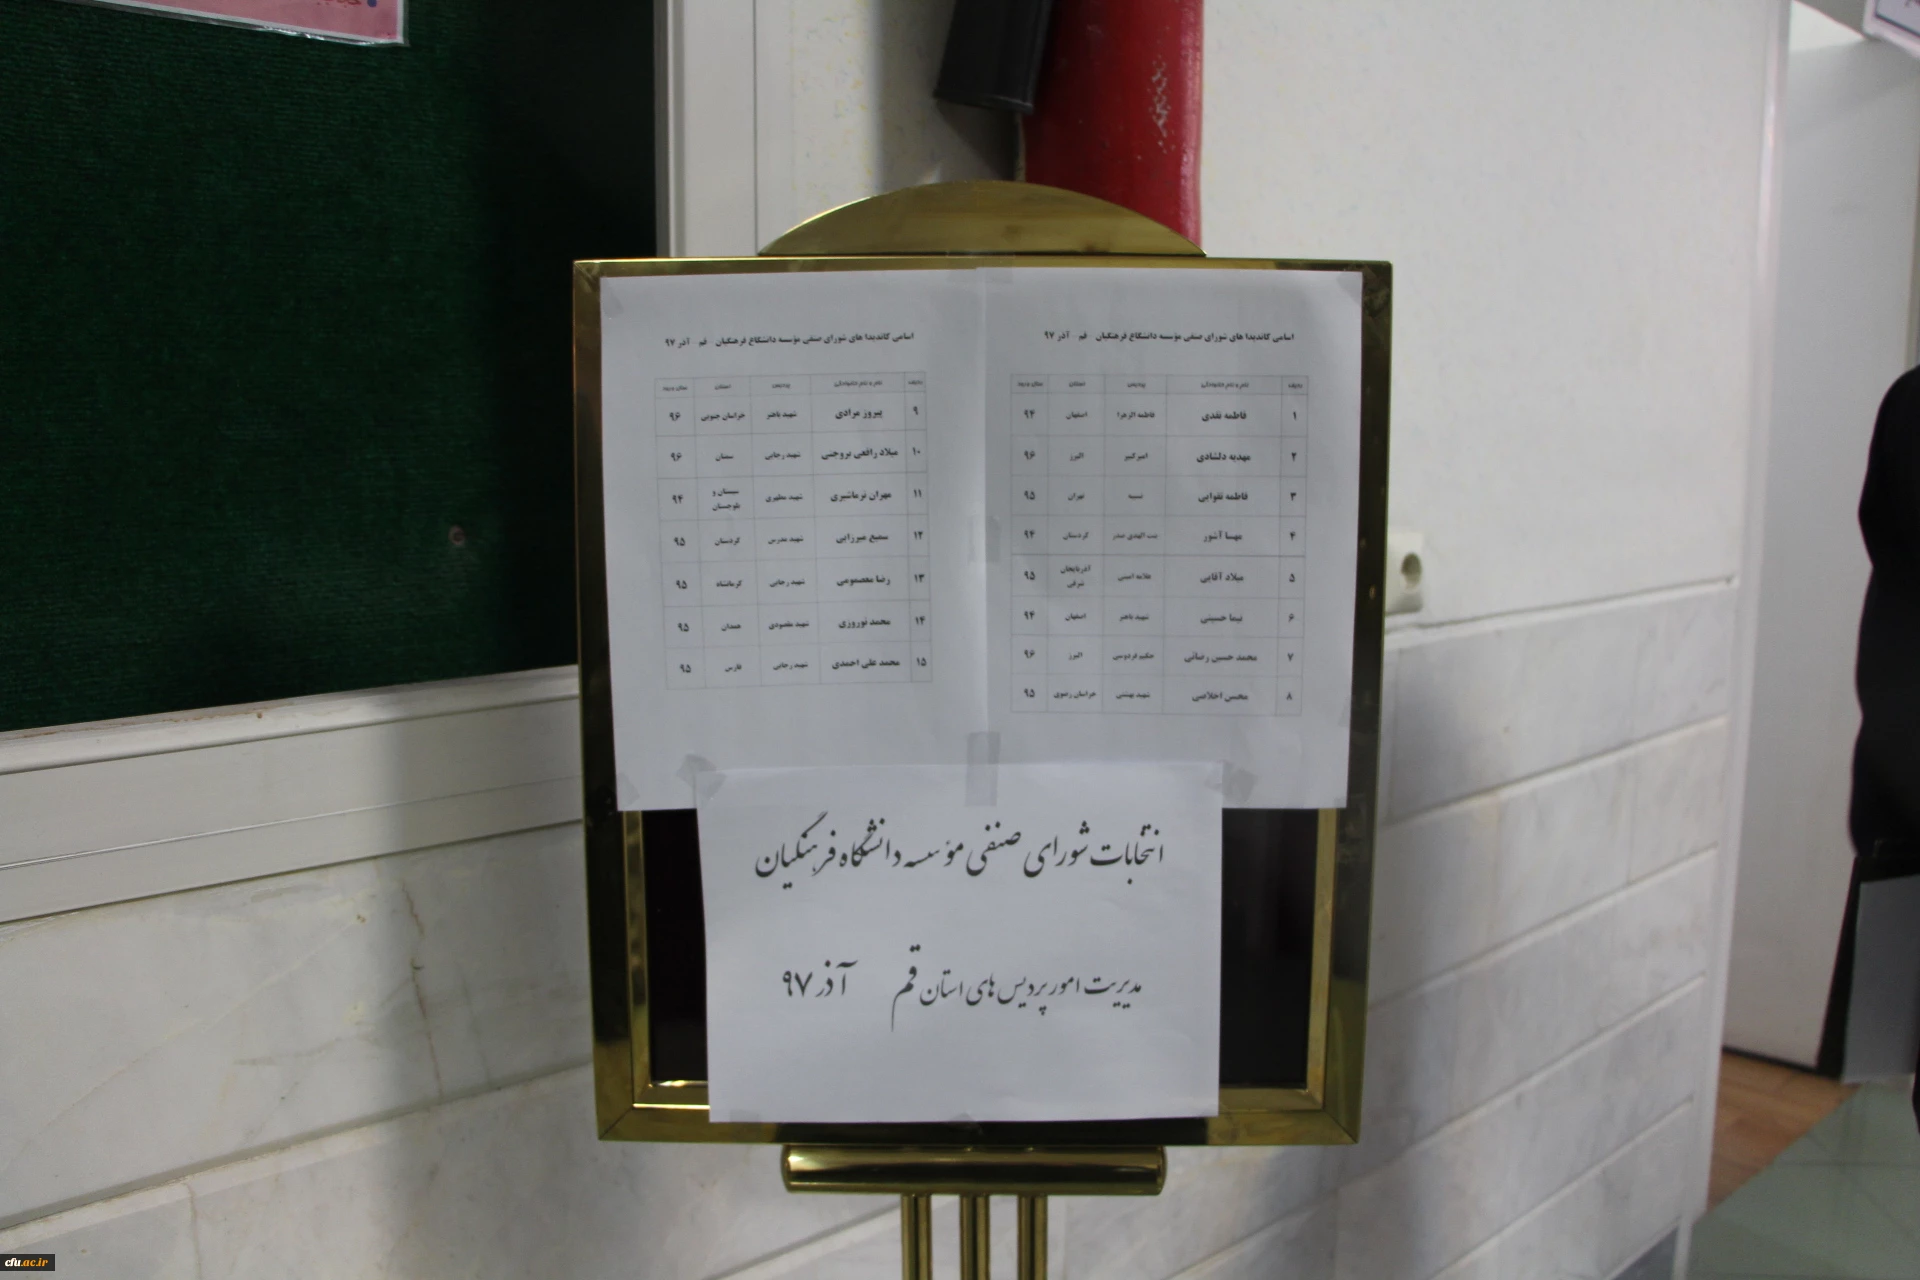 اسامی کاندیدا های شورای صنفی مؤسسه دانشگاع فرهنگیان – قم – آذر ۹۷
ردیف نام و نام خانوادگی پردیس استان سال ورود
۱ فاطمه نقدی فاطمه الزهرا اصفهان ۹۴
۲ مهدیه دلشادی امیرکبیر البرز ۹۶
۳ فاطمه تقوایی نسیبه تهران ۹۵
۴ مهسا آشور بنت الهدی صدر کردستان ۹۴
۵ میلاد آقایی علامه امینی آذربایجان شرقی ۹۵
۶ نیما حسینی شهید باهنر اصفهان ۹۴
۷ محمد حسین رضائی حکیم فردوسی البرز ۹۶
۸ محسن اخلاصی شهید بهشتی خراسان رضوی ۹۵
اسامی کاندیدا های شورای صنفی مؤسسه دانشگاع فرهنگیان – قم – آذر ۹۷
ردیف نام و نام خانوادگی پردیس استان سال ورود
۹ پیروز مرادی شهید باهنر خراسان جنوبی ۹۶
۱۰ میلاد رافعی بروجنی شهید رجایی سمنان ۹۶
۱۱ مهران نرماشیری شهید مطهری سیستان و بلوچستان ۹۴
۱۲ سمیع میرزایی شهید مدرس کردستان ۹۵
۱۳ رضا معصومی شهید رجایی کرمانشاه ۹۵
۱۴ محمد نوروزی شهید مقصودی همدان ۹۵
۱۵ محمد علی احمدی شهید رجایی فارس ۹۵
انتخابات شورای صنفی مؤسسه دانشگاه فرهنگیان
مدیریت امور پردیس های استان قم آذر ۹۷
cfu.ac.ir